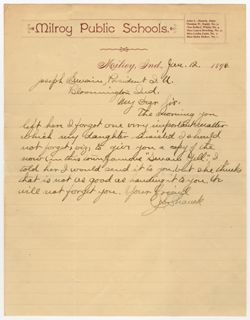 Milroy Public Schools.
Milroy, Ind., Jan. 12, 1896
Joseph Swain, President I. U.
Bloomington Ind.
My Dear Sir:
The morning you
left here I forgot one very important matter
which my daughter insisted I should
not forget, viz, to give you a copy of the
now (in this com) famous "Swain Yell." I
told her I would send it to you but she thinks
that is not as good as handing it to you. We
will not forget you. Your friend